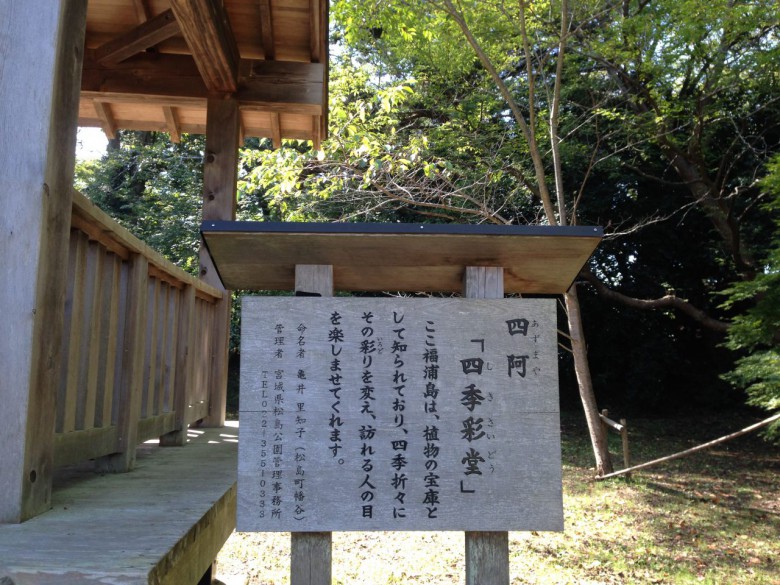 四阿
あずまや
「四季彩堂」
しきさいどう
ここ福浦島は、植物の宝庫と
して知られており、四季折々に
その彩りを変え、訪れる人の目
いろど
を楽しませてくれます。
命名者 亀井 里知子（松島町幡谷）
管理者 宮城県松島公園管理事務所
TEL022-355-0333